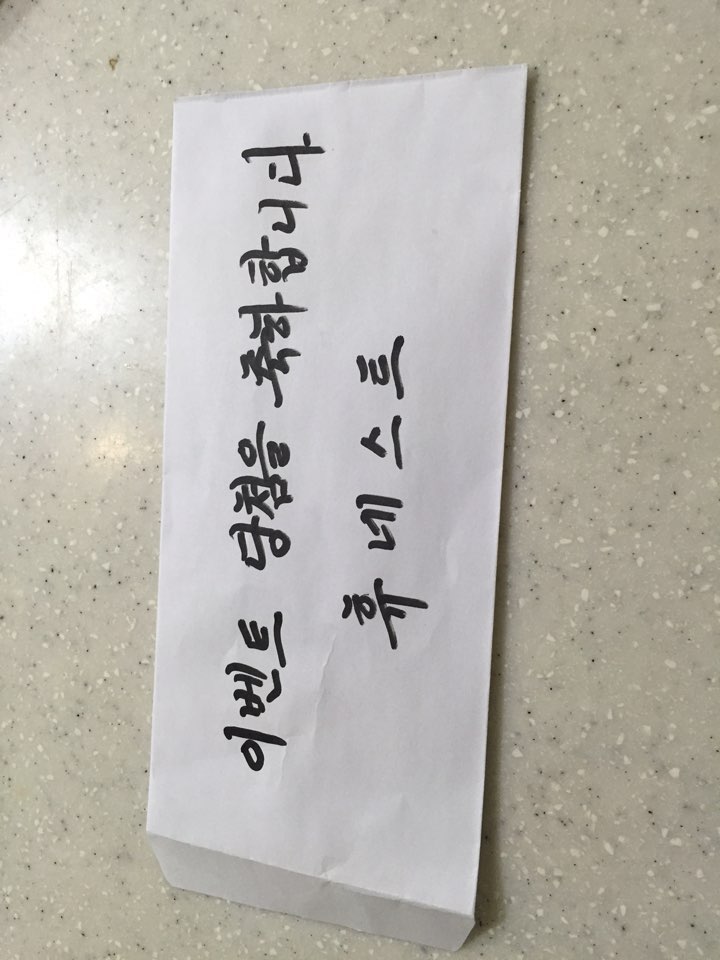 이벤트 당첨을 축하합니다
휴네스트